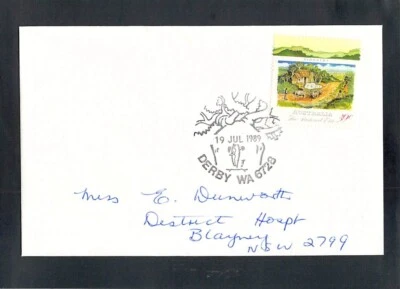 AUSTRALIA
19 JUL 1989
DERBY WA 6728
Miss E. Dunworth
District Hospt
Blayney
NSW 2799